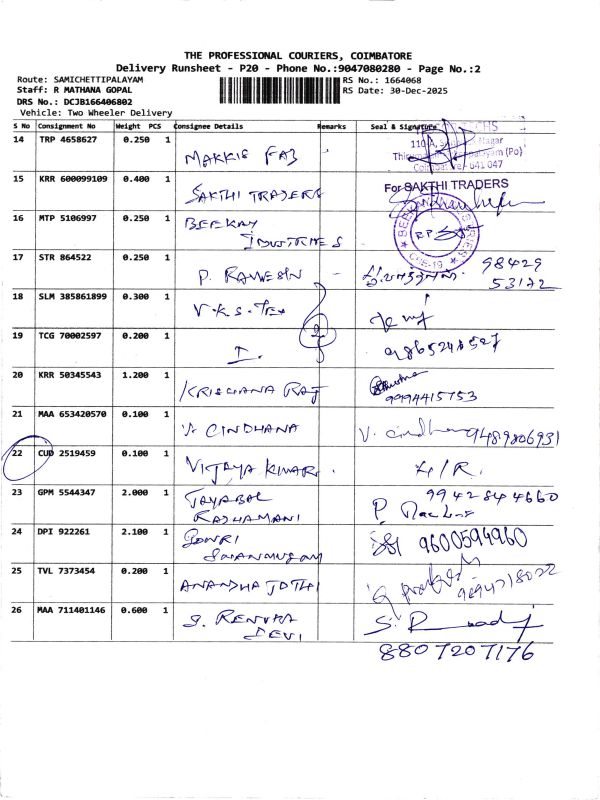 THE PROFESSIONAL COURIERS, COIMBATORE
Delivery Runsheet - P20 - Phone No.:9047080280 - Page No.:2
Route: SAMICHETTIPALAYAM
RS No.: 1664068
Staff: R MATHANA GOPAL
RS Date: 30-Dec-2025
DRS No.: DCJB166406802
Vehicle: Two Wheeler Delivery
S No Consignment No Weight PCS Consignee Details Remarks Seal & Signature
14 TRP 4658627 0.250 1 MAKKIS FAB
641 047
15 KRR 600099109 0.400 1 SAKTHI TRADERS For SAKTHI TRADERS
16 MTP 5106997 0.250 1 BEEKAY
INDUSTRIES
CBE-19
17 STR 864522 0.250 1 P. RAMESH 98429
53172
18 SLM 385861899 0.300 1 V.K.S. Tex
19 TCG 70002597 0.200 1 I. 9865248527
20 KRR 50345543 1.200 1 KRISHANA RAJ
9994415753
21 MAA 653420570 0.100 1 V. CINDHANA V. 9489806931
22 CUD 2519459 0.100 1 VIJAYA KUMAR H/R.
23 GPM 5544347 2.000 1 JAYABAL 9942844660
RAJHAMANI P.
24 DPI 922261 2.100 1 GOWRI 9600594960
25 TVL 7373454 0.200 1 ANANDHA JOTHI 9894718022
26 MAA 711401146 0.600 1 S. RENUKA
DEVI
8807207176